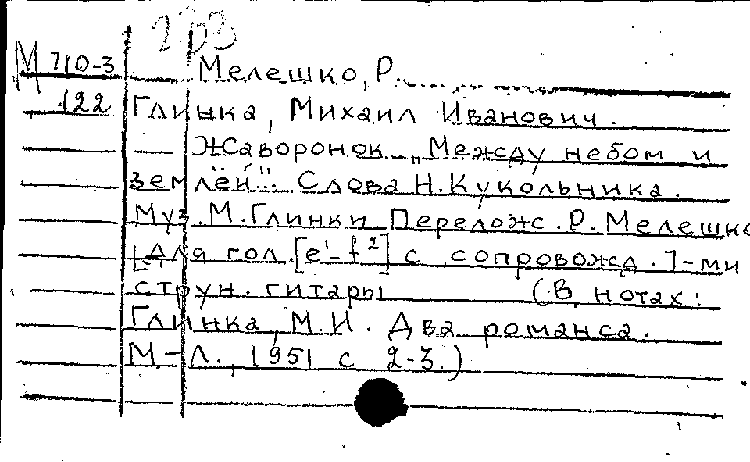 233
М 710-3 Мелешко, Р.
122 Глинка, Михаил Иванович.
Жаворонок. „Между небом и
землёй". Слова Н. Кукольника.
Муз. М. Глинки Перелож. Р. Мелешко
[Для гол. [e¹-f²] с сопровожд. 7-ми
струн. гитары (В нотах:
Глинка, М.И. Два романса.
М-Л., 1951 с 2-3.)